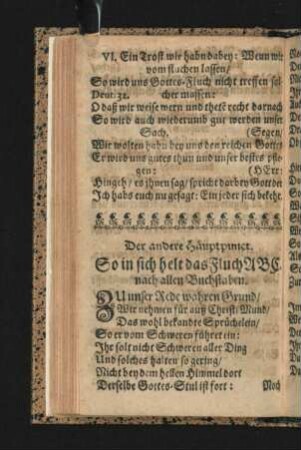 VI. Ein Trost wir habn dabey: Wenn wir
vom fluchen lassen/
So wird uns Gottes-Fluch nicht treffen sol-
Deut. 32. cher massen:
O daß wir weise wern und thetē recht darnach
So wird auch wiederumb gut werden unser
Sach. (Segen/
Wir wolten habn bey uns den reichen Gottes
Er wird uns gutes thun und unser bestes pfle-
gen: (HErr:
Hingeh/ es ihnen sag/ spricht darbey Gott der
Ich habs euch nu gesagt: Ein jeder sich bekehr.
Der andere Häuptpunct.
So in sich helt das Fluch ABC.
nach allen Buchstaben.
ZU unser Rede wahren Grund/
Wir nehmen für auß Christi Mund/
Das wohl bekandte Sprüchelein/
So er vom Schweren führet ein:
Ihr solt nicht Schweren aller Ding
Und solches halten so gering/
Nicht bey dem hellen Himmel dort
Derselbe Gottes-Stul ist fort: Noch